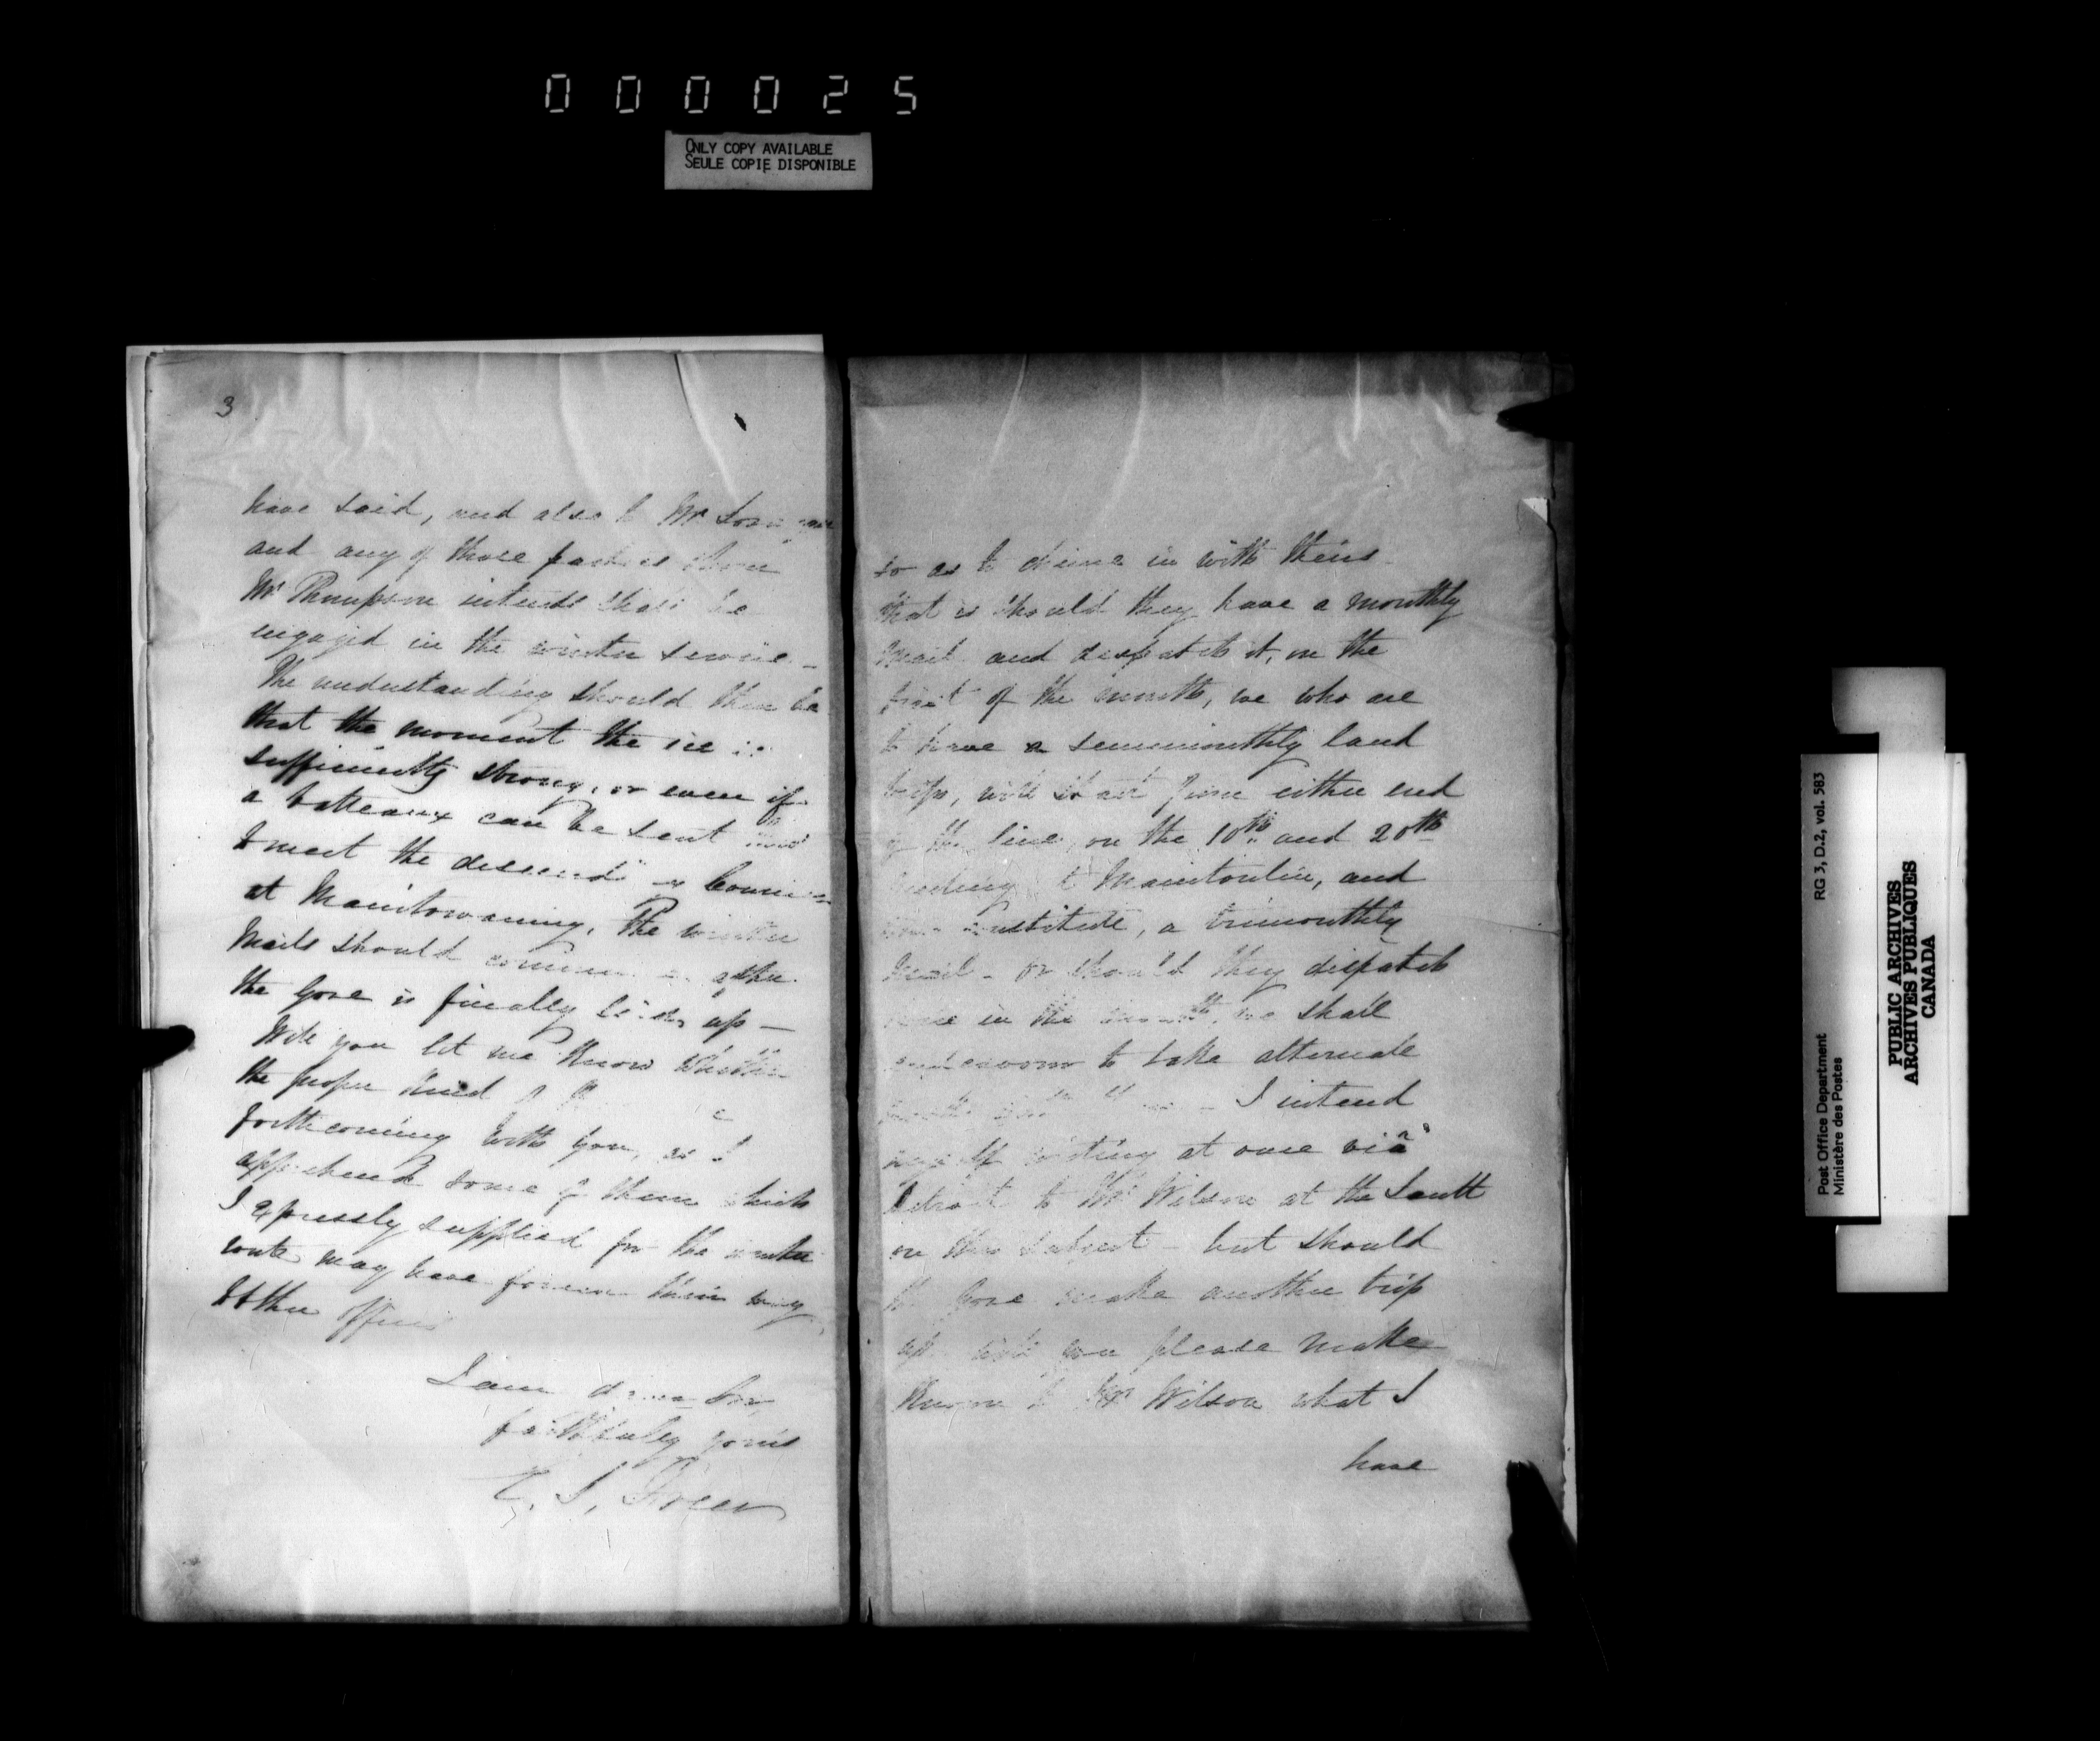 000025
ONLY COPY AVAILABLE
SEULE COPIE DISPONIBLE
3
have said, and also to Mr
and any of those parties whom
Mr Thompson intends shall be
engaged in the winter service –
The understanding should then be
that the moment the ice is
sufficiently strong, or even if
a batteaux can be sent
to meet the descending
at Manitowaning, the winter
Mails should commence after
the Gore is finally laid up –
Will you let me know whether
the proper kind of
forthcoming with you, as I
apprehend some of them which
I expressly supplied for the winter
route may have found their way
to other offices
I am dear Sir
faithfully yours
so as to chime in with theirs –
that is should they have a monthly
Mail and despatch it, on the
first of the month, we who are
to have a semimonthly land
trip, will start from either end
of the line, on the 10th and 20th
to Manitoulin, and
constitute, a trimonthly
Mail – or should they dispatch
in the month, we shall
endeavour to take alternate
– I intend
myself writing at once viâ
Detroit to Mr Wilson at the Sault
on this subject – but should
the Gore make another trip
up will you please make
known to Mr Wilson what I
have
Post Office Department RG 3, D.2, vol. 583
Ministère des Postes
PUBLIC ARCHIVES
ARCHIVES PUBLIQUES
CANADA